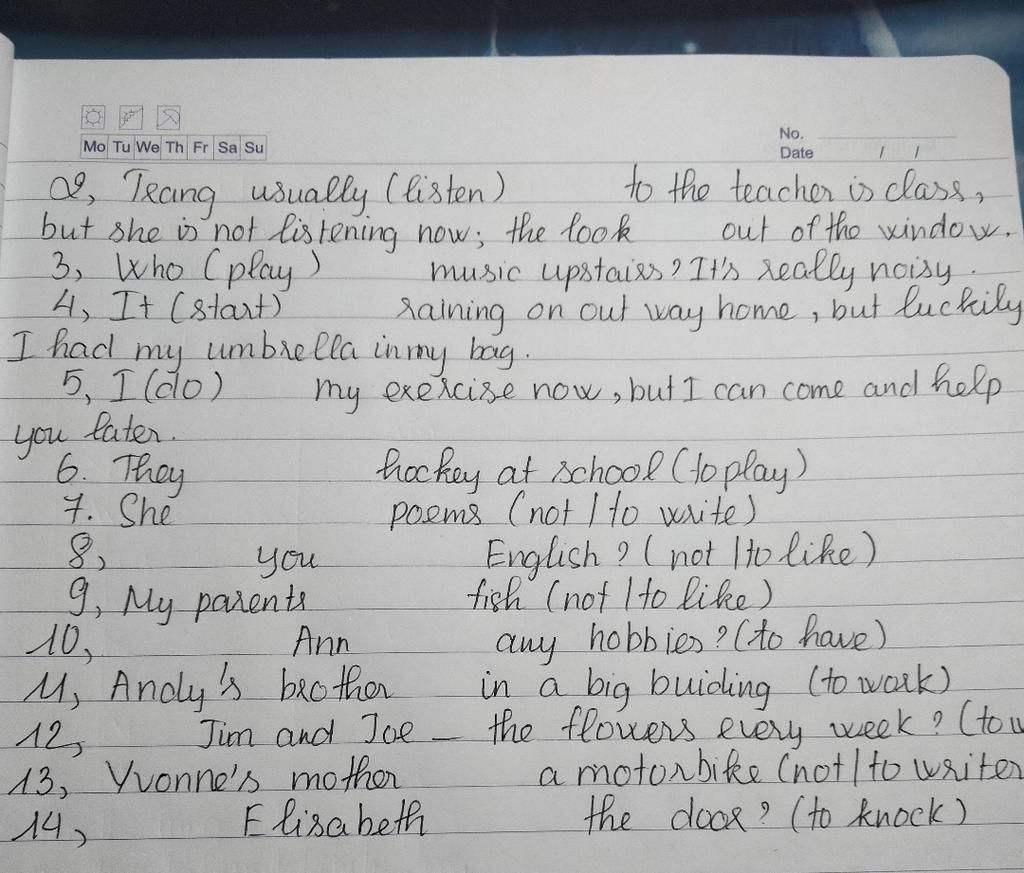 Mo Tu We Th Fr Sa Su
No.
Date / /
2, Trang usually (listen) to the teacher is class,
but she is not listening now; the look out of the window.
3, Who (play) music upstairs? It's really noisy.
4, It (start) raining on out way home, but luckily
I had my umbrella in my bag.
5, I (do) my exercise now, but I can come and help
you later.
6. They hockey at school (to play)
7. She poems (not / to write)
8, you English? (not / to like)
9, My parents fish (not / to like)
10, Ann any hobbies? (to have)
11, Andy's brother in a big buiding (to work)
12, Jim and Joe _ the flowers every week? (to w
13, Yvonne's mother a motorbike (not / to writer
14, Elisabeth the door? (to knock)